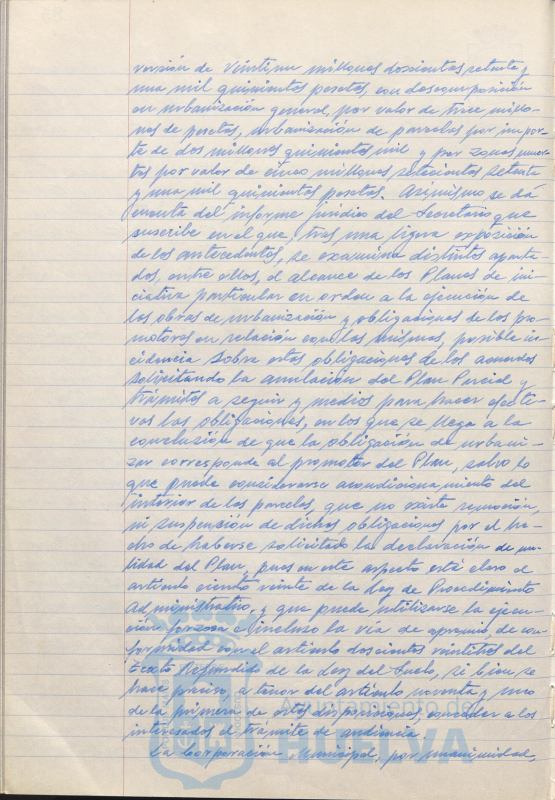 versión de veintiun millones doscientas setenta y
una mil quinientas pesetas, con descomposición
en urbanización general, por valor de trece millo-
nes de pesetas, urbanización de parcelas por impor-
te de dos millones quinientas mil y por zonas
por valor de cinco millones setecientas setenta
y una mil quinientas pesetas. Asimismo se dá
cuenta del informe jurídico del Secretario que
suscribe en el que, tras una ligera exposición
de los antecedentes, se examina distintos aparta-
dos, entre ellos, el alcance de los Planes de ini-
ciativa particular en orden a la ejecución de
las obras de urbanización y obligaciones de los pro-
motores en relación con las mismas, posible in-
cidencia sobre estas obligaciones de los acuerdos
solicitando la anulación del Plan Parcial y
trámites a seguir y medios para hacer efecti-
vas las obligaciones, en los que se llega a la
conclusión de que la obligación de urbani-
zar corresponde al promotor del Plan, salvo lo
que puede considerarse acondicionamiento del
interior de las parcelas, que no existe remoción,
ni suspensión de dichas obligaciones por el he-
cho de haberse solicitado la declaración de nu-
lidad del Plan, pues en este aspecto está claro el
artículo ciento veinte de la Ley de Procedimiento
Administrativo, y que puede utilizarse la ejecu-
ción forzosa e incluso la vía de apremio, de con-
formidad con el artículo doscientos veintitres del
Texto Refundido de la Ley del Suelo, si bien se
hace preciso, a tenor del artículo noventa y uno
de la primera de estas disposiciones, conceder a los
interesados el trámite de audiencia.
La Corporación Municipal, por unanimidad,
Ayuntamiento de
HUELVA